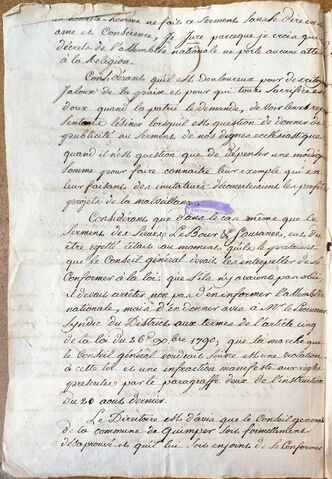 un honnete homme ne fait de Serment Sans le dire en
ame et Conscience, Je jure parceque je crois que
décrets de l'assemblée nationale ne porte aucune atte
à la Religion.
Considérant qu'il est douloureux pour des citoy
Jaloux de la paix et pour qui toutes Sacrifices
doux quand la patrie le demande, de voir leurs repré
sentans lésiner lorsqu'il est question de donner de
publicité au Serment de nos dignes ecclésiastiques
quand il n'est question que de dépenser une modique
Somme pour faire connaître leur exemple qui en
leur faisant des imitateurs déconcerteroient les perfides
projets de la malveillance.
Considérant que dans le cas même que le
Serment des Sieurs Le Bour & eut du
être rejetté c'étoit au moment qu'ils le prêtoient
que le Conseil général devoit les interpeller de se
Conformer à la loi; que s'ils n'y avoient pas obéi
il devoit arrêter non pas d'en informer l'assemblée
nationale, mais d'en donner avis à Mr. le Procureur
Syndic du District aux termes de l'article cinq
de la loi du 26 Xbre 1790; que la marche que
le Conseil général voudroit Suivre est une violation
à cette loi et une infraction manifeste aux regles
presentes par le paragraffe deux de l'instruction
du 20 aout dernier.
Le Directoire est d'avis que le Conseil general
de la commune de Quimper Soit formellement
désaprouvé et qu'il lui Soit enjoint de se Conformer